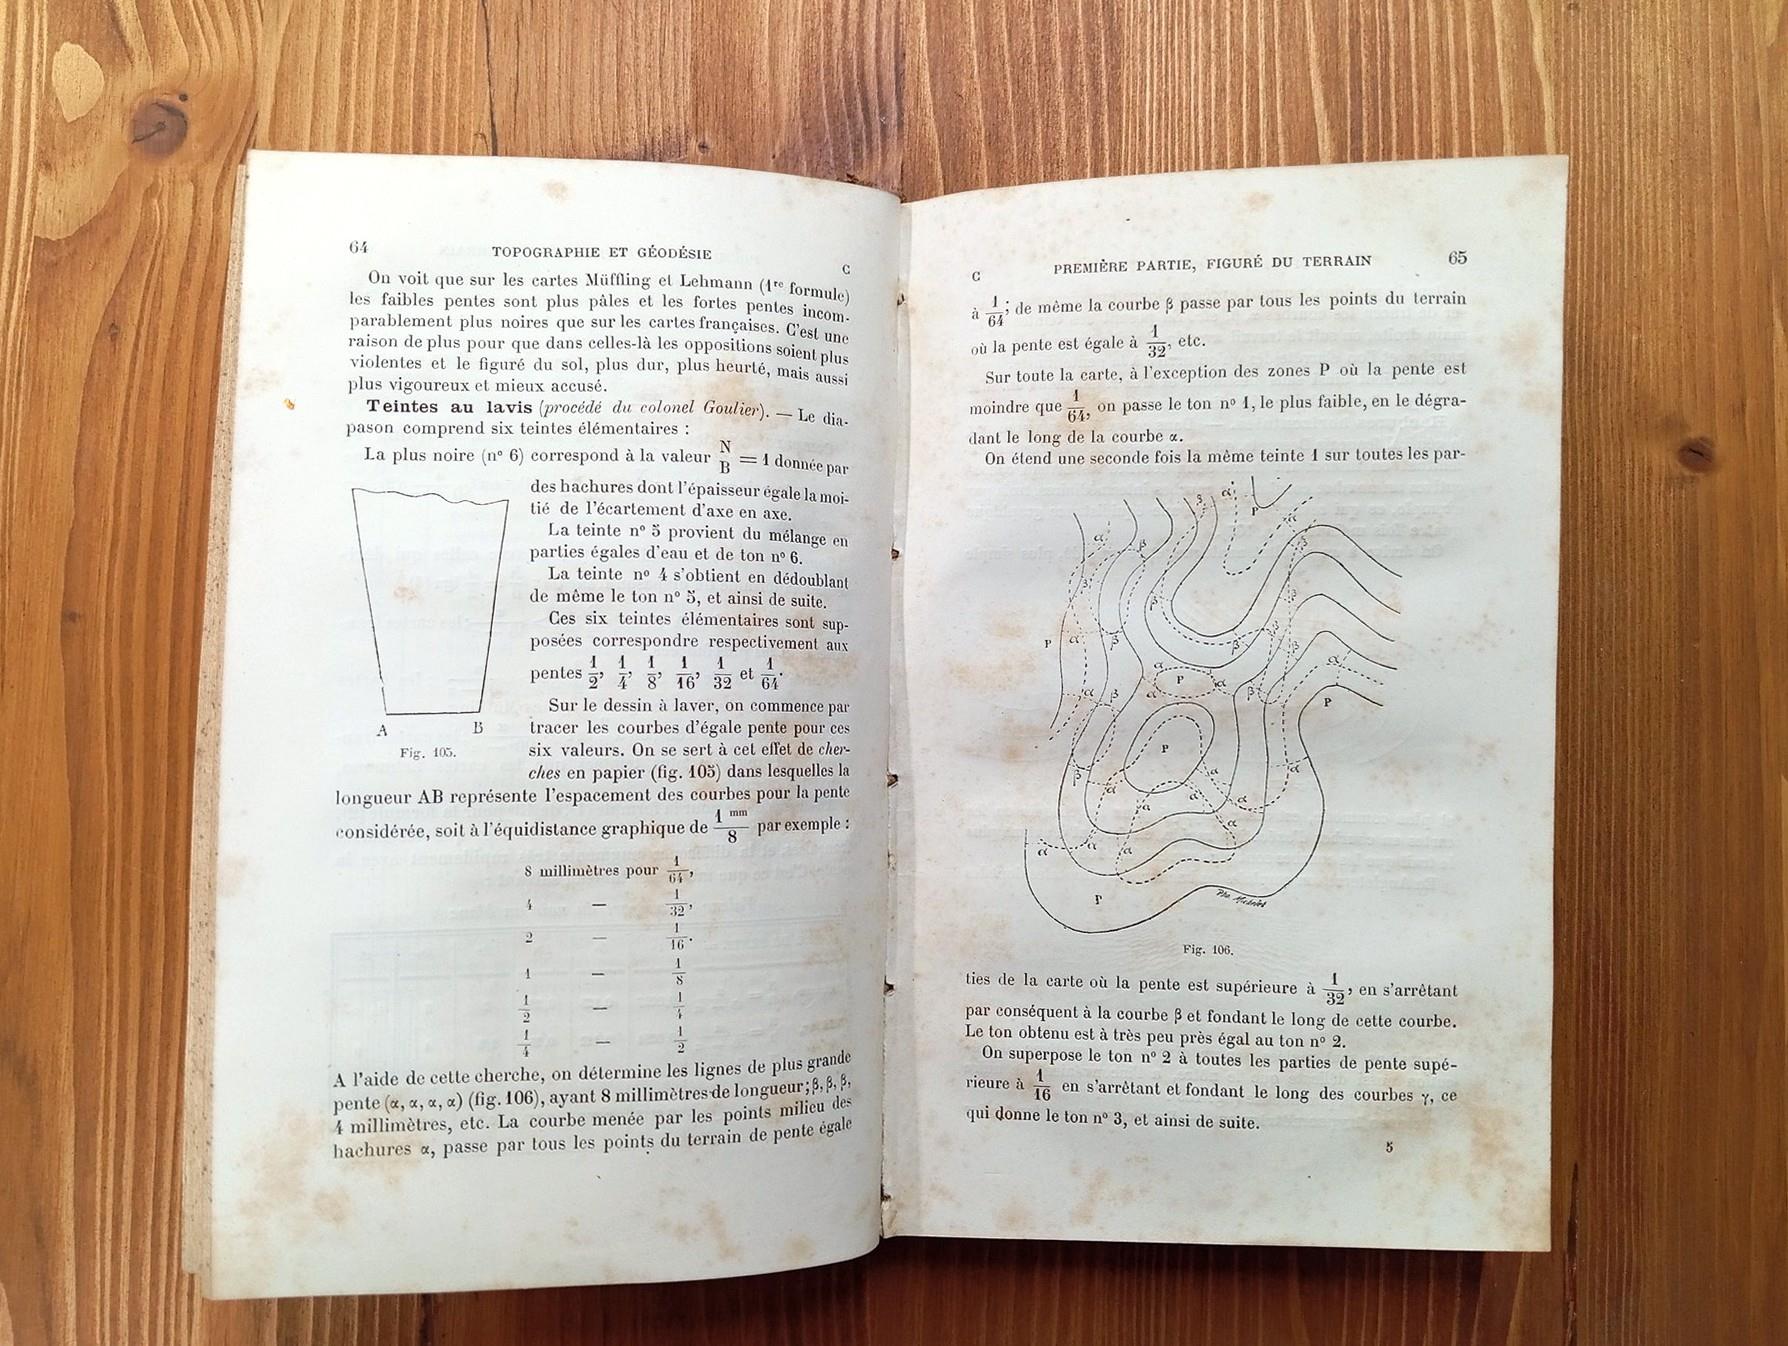 64
TOPOGRAPHIE ET GÉODÉSIE
C
On voit que sur les cartes Müffling et Lehmann (1re formule)
les faibles pentes sont plus pâles et les fortes pentes incom-
parablement plus noires que sur les cartes françaises. C'est une
raison de plus pour que dans celles-là les oppositions soient plus
violentes et le figuré du sol, plus dur, plus heurté, mais aussi
plus vigoureux et mieux accusé.
Teintes au lavis (procédé du colonel Goulier). — Le dia-
pason comprend six teintes élémentaires :
La plus noire (n° 6) correspond à la valeur N/B = 1 donnée par
des hachures dont l'épaisseur égale la moi-
tié de l'écartement d'axe en axe.
La teinte n° 5 provient du mélange en
parties égales d'eau et de ton n° 6.
La teinte n° 4 s'obtient en dédoublant
de même le ton n° 5, et ainsi de suite.
Ces six teintes élémentaires sont sup-
posées correspondre respectivement aux
pentes 1/2, 1/4, 1/8, 1/16, 1/32 et 1/64.
Sur le dessin à laver, on commence par
tracer les courbes d'égale pente pour ces
six valeurs. On se sert à cet effet de cher-
ches en papier (fig. 105) dans lesquelles la
A B
Fig. 105.
longueur AB représente l'espacement des courbes pour la pente
considérée, soit à l'équidistance graphique de 1 mm/8 par exemple :
8 millimètres pour 1/64,
4 — 1/32,
2 — 1/16.
1 — 1/8
1/2 — 1/4
1/4 — 1/2
A l'aide de cette cherche, on détermine les lignes de plus grande
pente (α, α, α, α) (fig. 106), ayant 8 millimètres de longueur; β, β, β,
4 millimètres, etc. La courbe menée par les points milieu des
hachures α, passe par tous les points du terrain de pente égale
C
PREMIÈRE PARTIE, FIGURÉ DU TERRAIN
65
à 1/64; de même la courbe β passe par tous les points du terrain
où la pente est égale à 1/32, etc.
Sur toute la carte, à l'exception des zones P où la pente est
moindre que 1/64, on passe le ton n° 1, le plus faible, en le dégra-
dant le long de la courbe α.
On étend une seconde fois la même teinte 1 sur toutes les par-
β α P α
α β β
β β
P α β β β
α α P α α
α β β P
P
β α α
α α α α
α
α α α
P
Fig. 106.
ties de la carte où la pente est supérieure à 1/32, en s'arrêtant
par conséquent à la courbe β et fondant le long de cette courbe.
Le ton obtenu est à très peu près égal au ton n° 2.
On superpose le ton n° 2 à toutes les parties de pente supé-
rieure à 1/16 en s'arrêtant et fondant le long des courbes γ, ce
qui donne le ton n° 3, et ainsi de suite.
5